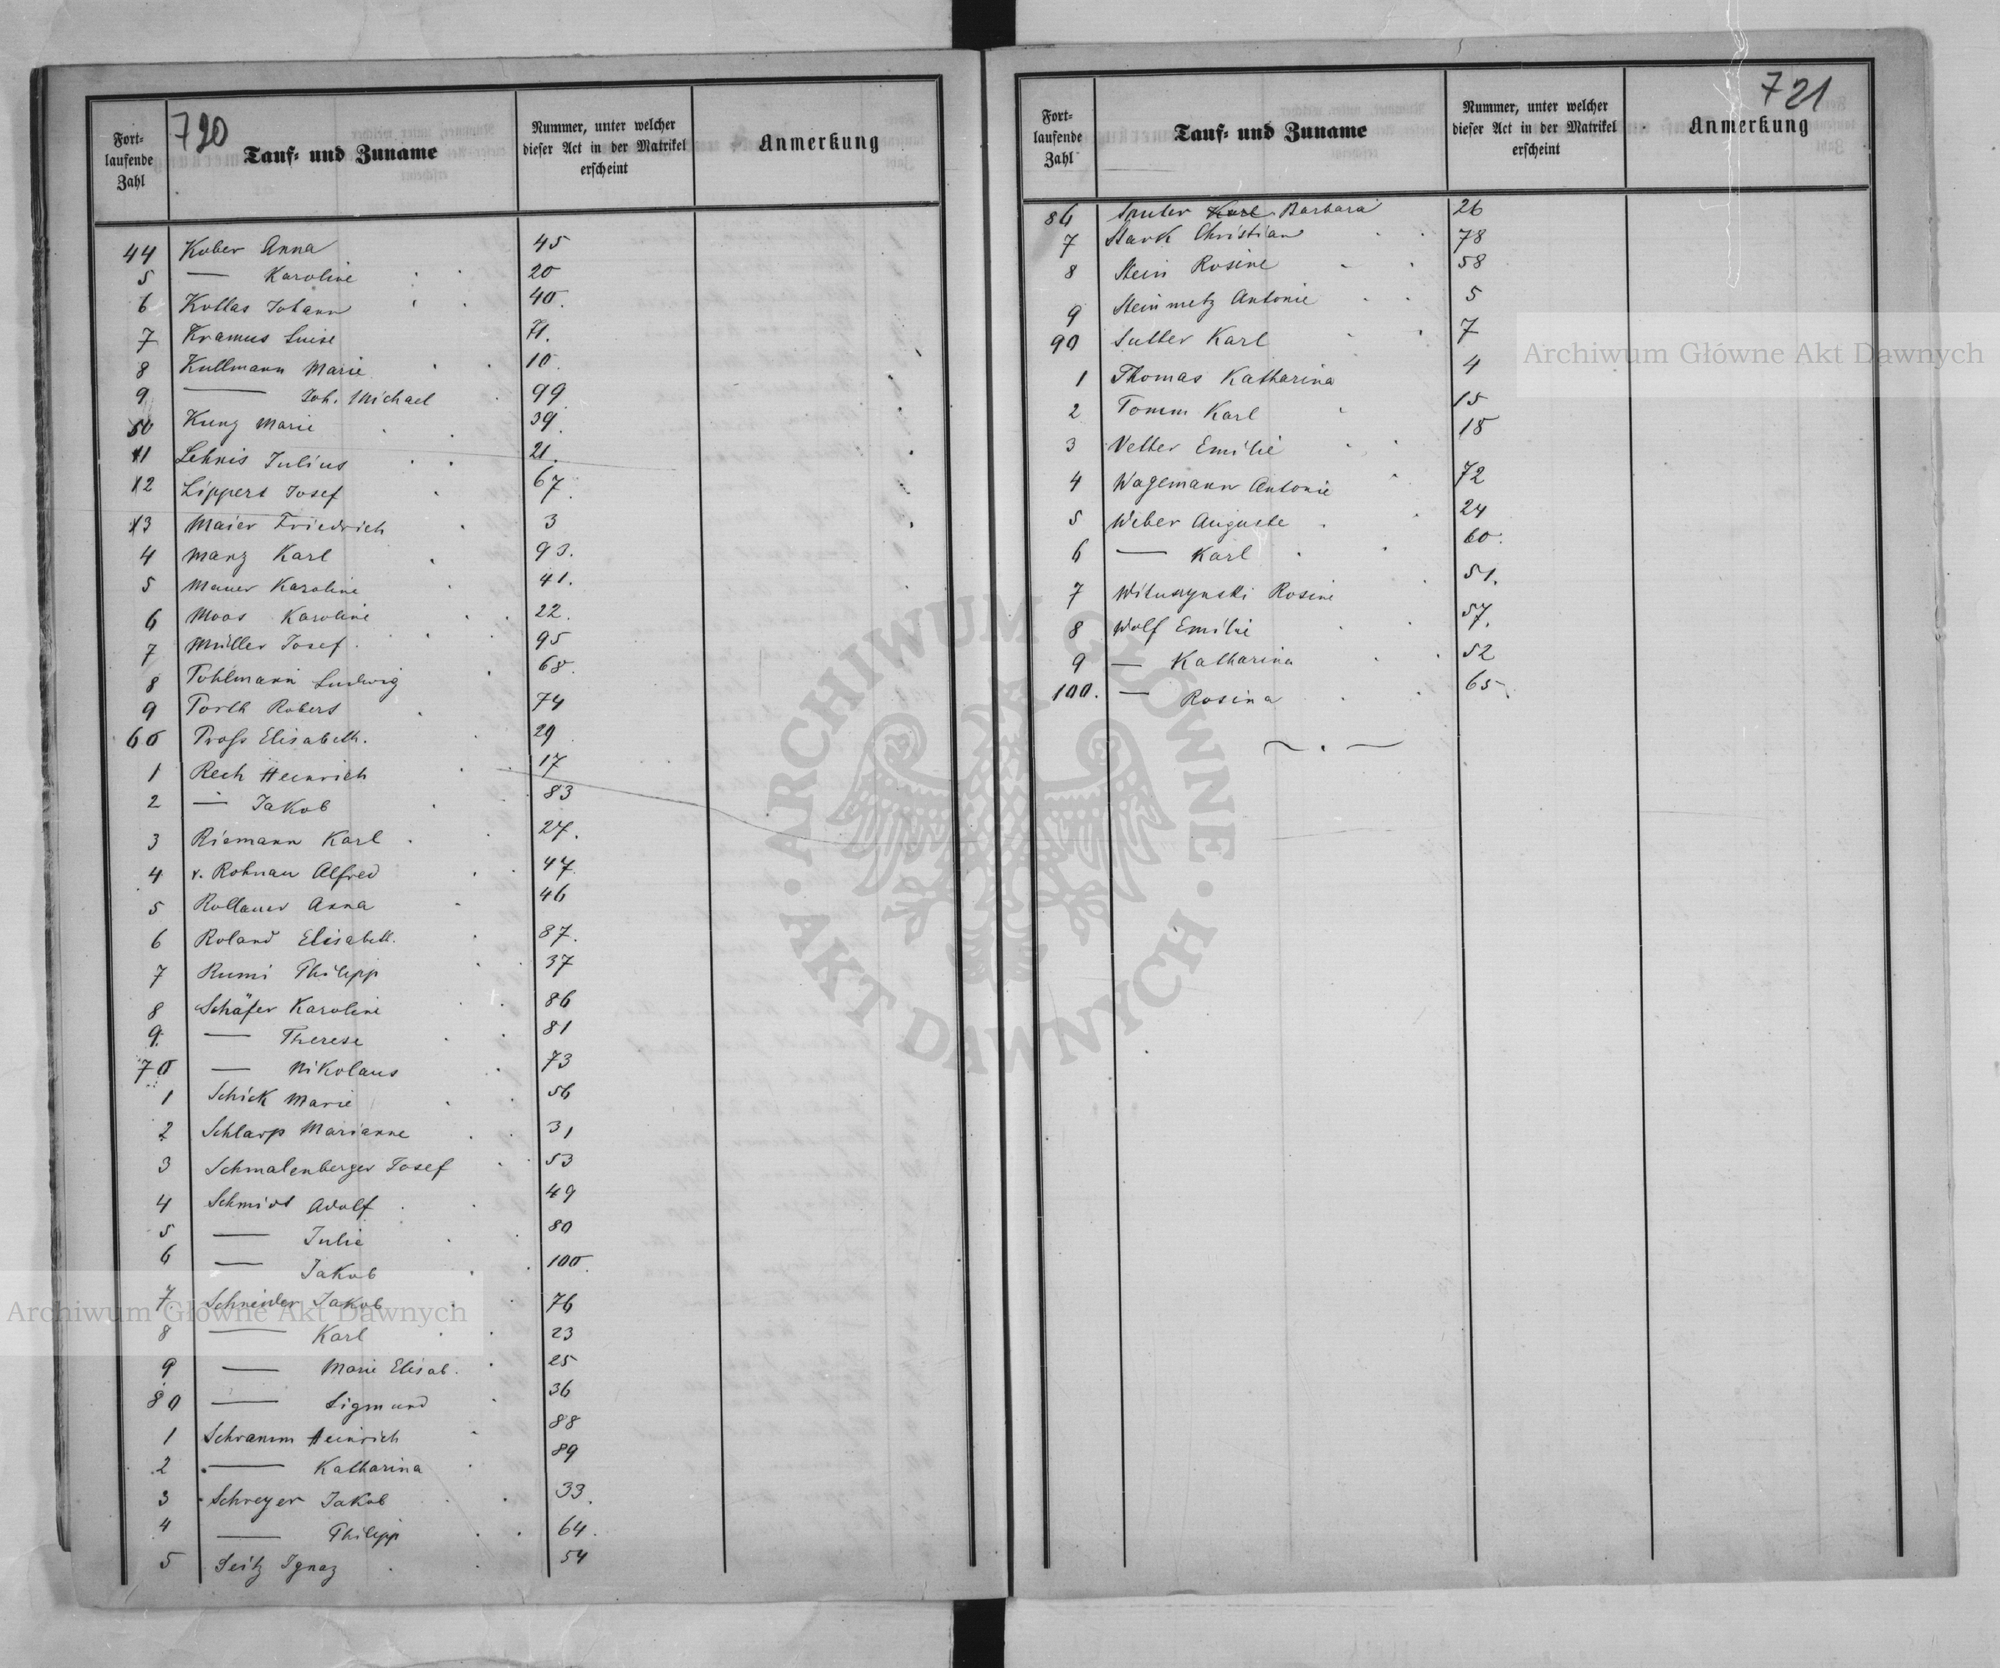 720
Fort-
laufende
Zahl
Tauf- und Zuname
Nummer, unter welcher
dieser Act in der Matrikel
erscheint
Anmerkung
44 Kober Anna 45
5 — Karoline 20
6 Kollas Johann 40.
7 Kramus Luise 71.
8 Kullmann Marie 10.
9 — Joh. Michael 99
50 Kunz Marie 39.
11 Lehnis Julius 21.
12 Lippert Josef 67.
13 Maier Friedrich 3
4 Manz Karl 93.
5 Mauer Karoline 41.
6 Moos Karoline 22.
7 Müller Josef 95
8 Pohlmann Ludwig 68.
9 Porth Robert 74
60 Pross Elisabeth. 29
1 Rech Heinrich 17
2 — Jakob 83
3 Riemann Karl 27.
4 v. Rohnau Alfred 47
5 Rollauer Anna 46
6 Roland Elisabeth. 87.
7 Rumi Philipp 37
8 Schäfer Karoline 86
9. — Therese 81
70 — Nikolaus 73
1 Schick Marie 56
2 Schlarp Marianne 31
3 Schmalenberger Josef 53
4 Schmidt Adolf 49
5 — Julie 80
6 — Jakob 100.
7. Schneider Jakob 76
8 — Karl 23
9 — Marie Elisab. 25
80 — Sigmund 36
1 Schramm Heinrich 88
2 — Katharina 89
3 Schreyer Jakob 33.
4 — Philipp 64.
5 Seitz Ignaz 54
721
Fort-
laufende
Zahl
Tauf- und Zuname
Nummer, unter welcher
dieser Act in der Matrikel
erscheint
Anmerkung
86 Karl Barbara 26
7 Stark Christian 78
8 Stein Rosine 58
9 Steinmetz Antonie 5
90 Sutter Karl 7
1 Thomas Katharina 4
2 Tomm Karl 15
3 Vetter Emilie 18
4 Wagemann Antonie 72
5 Weber Auguste 24
6 — Karl 60.
7 Wituszynski Rosine 51.
8 Wolf Emilie 57.
9 — Katharina 52
100. — Rosina 65.
Archiwum Główne Akt Dawnych
Archiwum Główne Akt Dawnych
ARCHIWUM GŁÓWNE · AKT DAWNYCH ·